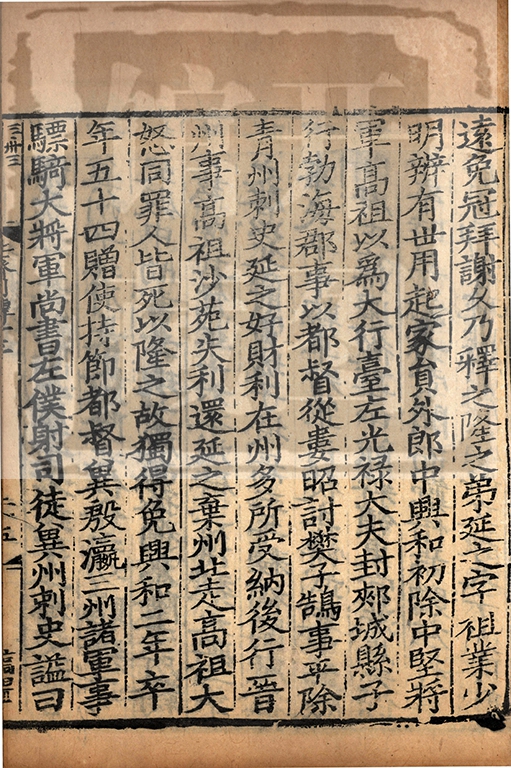 遠免冠拜謝久乃釋之隆之弟延之字祖業少
明辨有世用起家員外郎中興和初除中堅將
軍高祖以爲大行臺左光祿大夫封郟城縣子
行勃海郡事以都督從婁昭討樊子鵠事平除
青州刺史延之好財利在州多所受納後行晉
州事高祖沙苑失利還延之棄州北走高祖大
怒同罪人皆死以隆之故獨得免興和二年卒
年五十四贈使持節都督兾殷瀛三州諸軍事
驃騎大將軍尚書左僕射司徒兾州刺史諡曰
三卅三